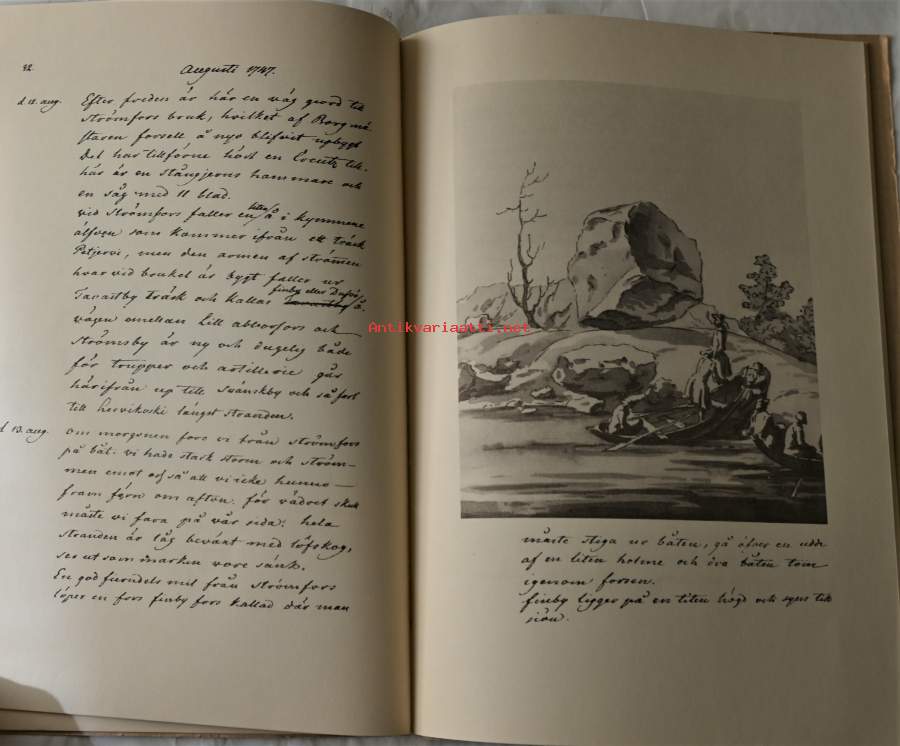 82.
Augusti 1747.
d. 12. aug. Efter freden är här en väg giord til
Strömfors bruk, hvilket af Borgmä-
staren forsell å nyo blifvit upbygt
det har tillförne hört en Creutz till.
här är en stångjerns hammare och
en såg med 11 blad.
vid Strömfors faller en liten å i kymmene
älfven som kommer ifrån ett träsk
Petjervi, men den armen af strömen
hvar vid bruket är bygt faller ur
finby eller
Tavastby träsk och kallas Tavastby å.
vägen emellan till abborfors och
Strömsby är ny och dugelig både
för trupper och artillerie gås
härifrån up till Svänskby och så fort
till hirvikoski längst stranden.
d. 13. aug. om morgonen fore vi från Strömfors
på båt. vi hade stark storm och ström-
men emot oss så att vi icke hunno
fram förn om afton. för vädret skull
måste vi fara på vår sida: hela
stranden är låg bevänt med löfskog,
ser ut som marken vore sank.
En god fierndels mil från Strömfors
löper en fors finby fors kallad där man
Antikvariaatti.net
måste stiga ur båten, gå öfver en udd
af en liten holme och dra båten tom
igenom forsen.
finby ligger på en liten högd och syns till
siön.